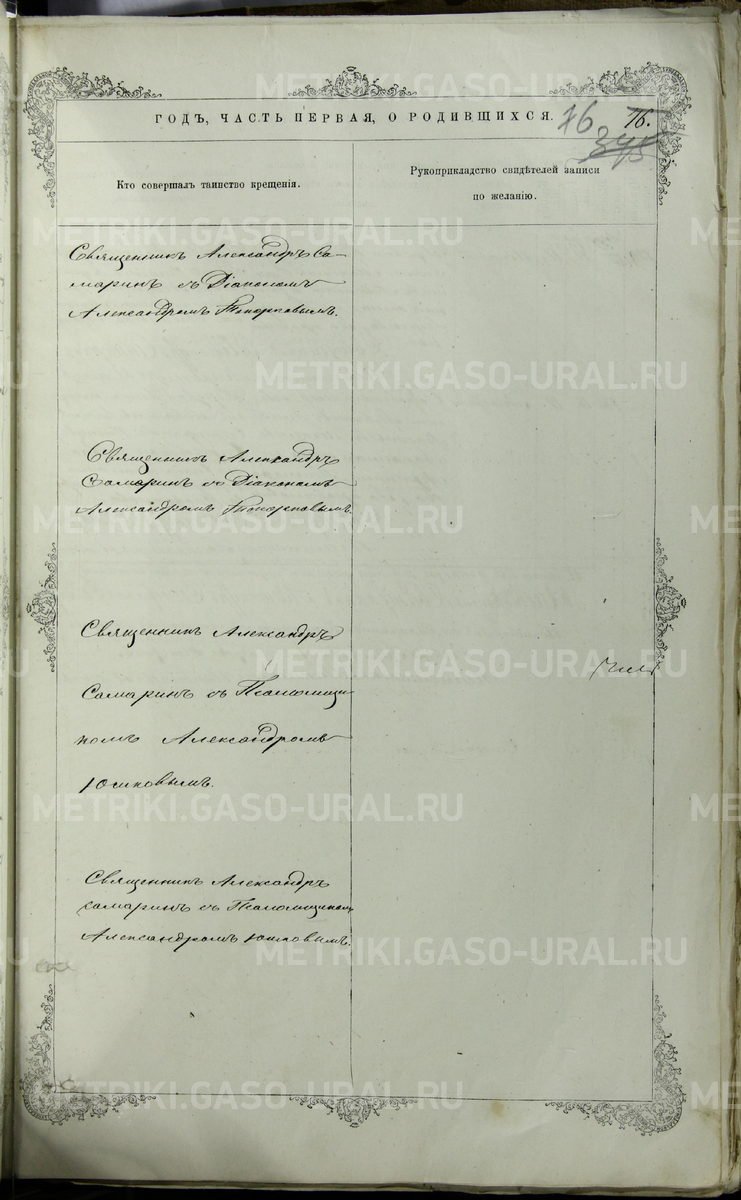 ГОДЪ, ЧАСТЬ ПЕРВАЯ, О РОДИВШИХСЯ.
76
16.
345
Кто совершалъ таинство крещенія.
Рукоприкладство свидѣтелей записи
по желанію.
Священникъ Александръ Са-
маринъ съ Діакономъ
Александромъ Топорковымъ.
Священникъ Александръ
Самаринъ съ Діакономъ
Александромъ Топорковымъ.
Священникъ Александръ
Самаринъ съ Псаломщи
комъ Александромъ
Юшковымъ.
Священникъ Александръ
Самаринъ съ Псаломщикомъ
Александромъ Юшковымъ.
METRIKI.GASO-URAL.RU